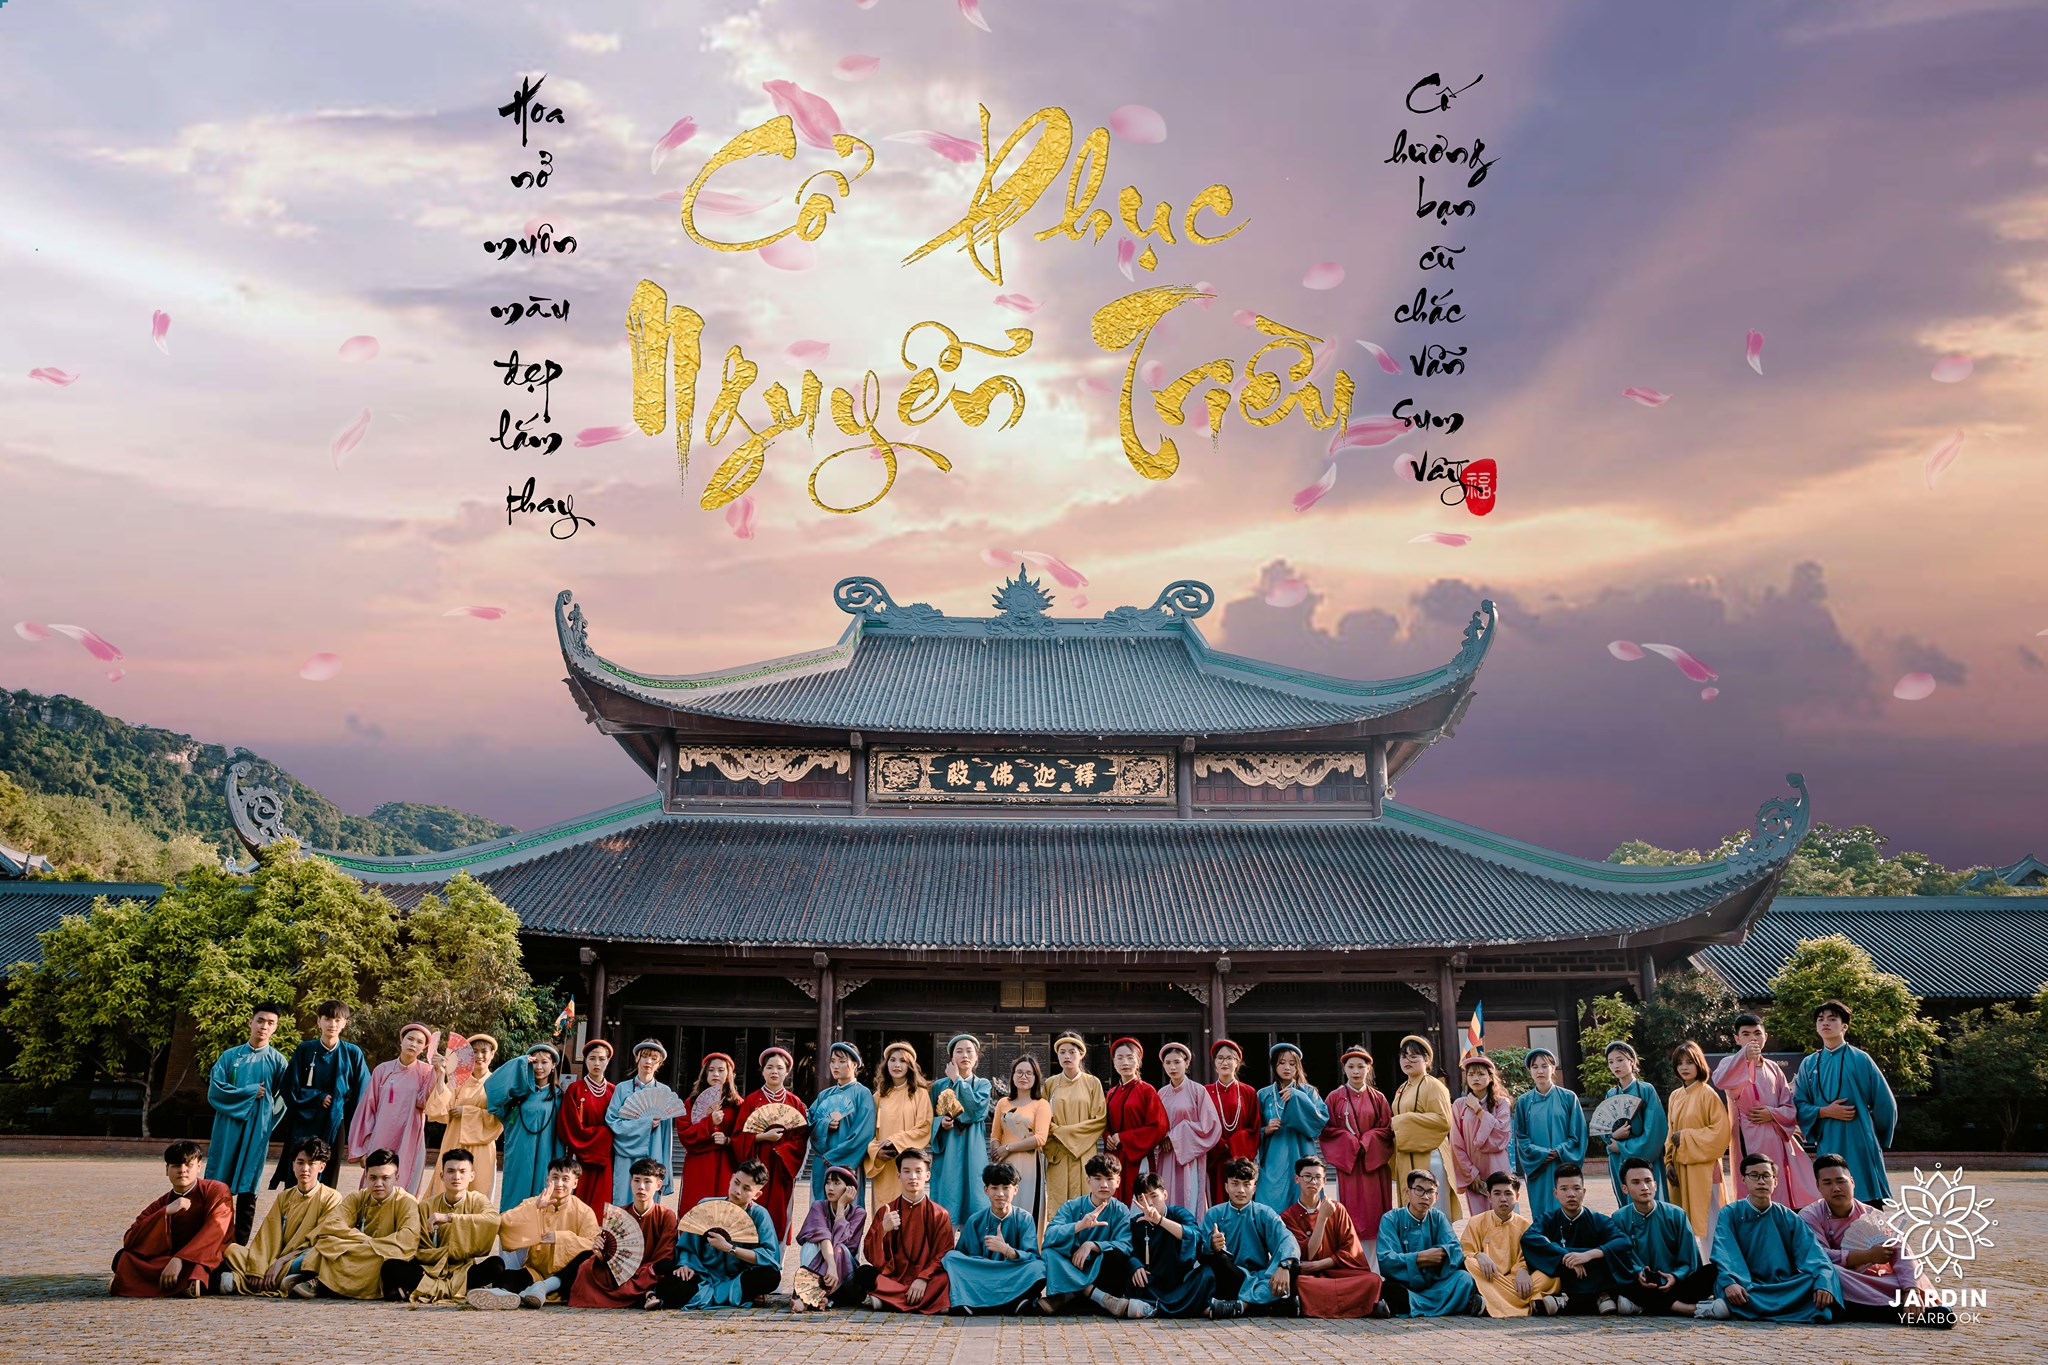 Hoa
nở
muôn
màu
đẹp
lắm
thay
Cổ Phục
Nguyễn Triều
Cố
hương
bạn
cũ
chắc
vẫn
sum
vầy
福
殿佛迦釋
JARDIN
YEARBOOK